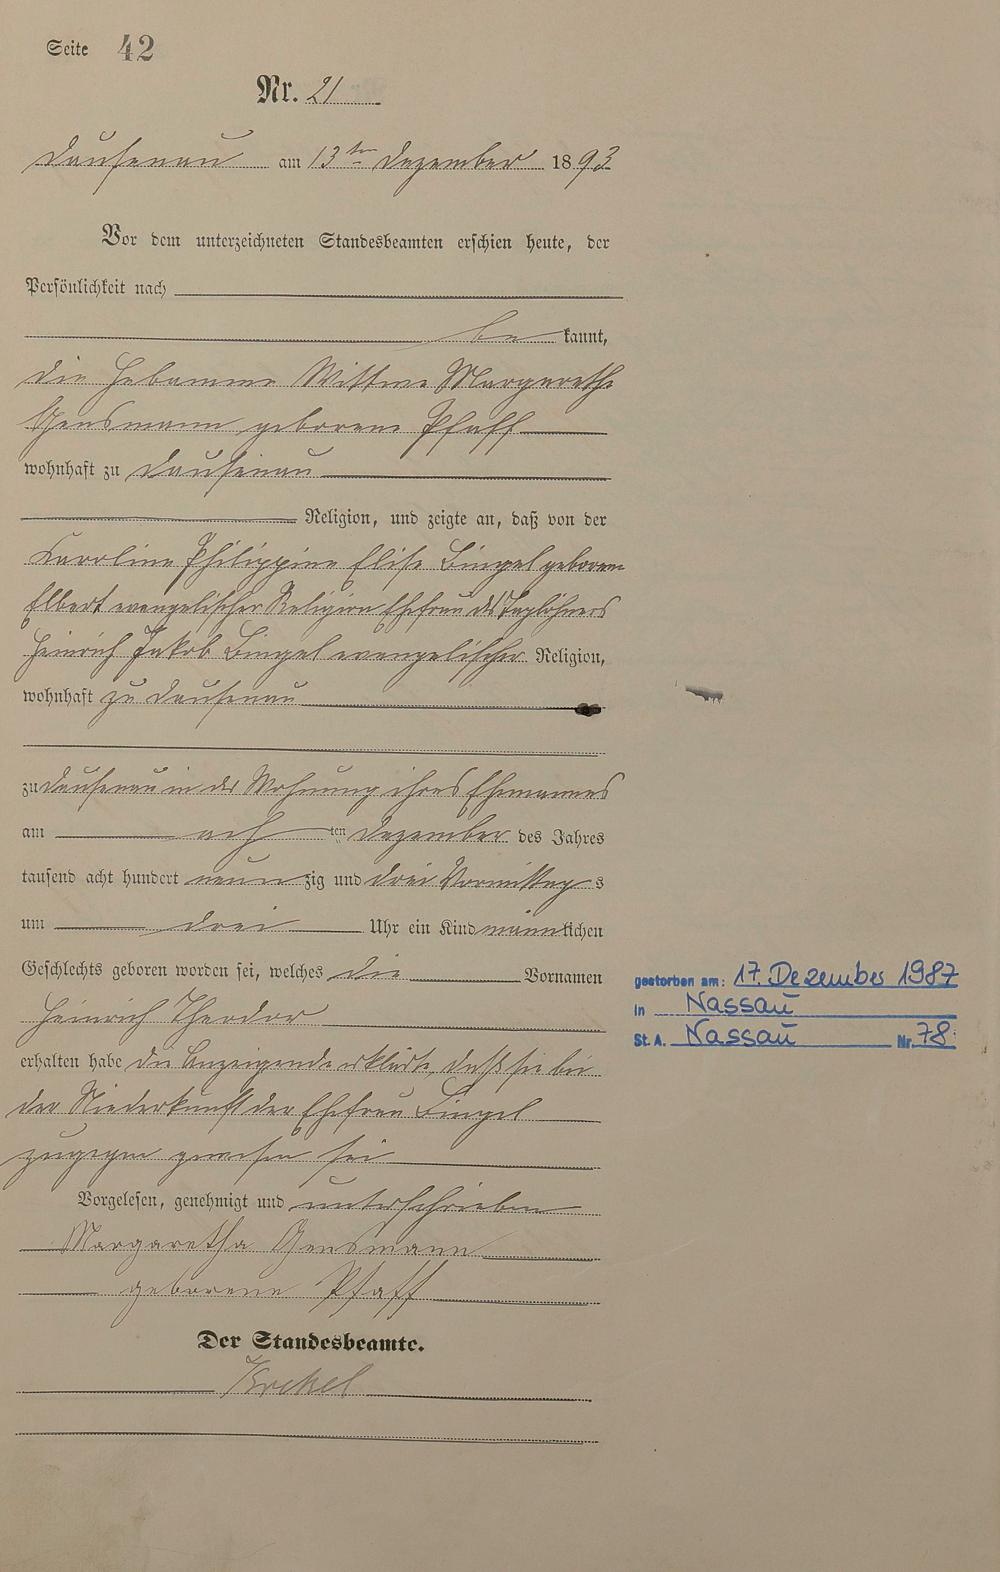 Seite 42
Nr. 21
Dausenau am 13ten Dezember 1893
Vor dem unterzeichneten Standesbeamten erschien heute, der
Persönlichkeit nach
be kannt,
die Hebamme Wittwe Margarethe
Gensmann geborene Pfaff
wohnhaft zu Dausenau
Religion, und zeigte an, daß von der
Karoline Philippine Elise Bingel geborene
Elbert evangelischer Religion Ehefrau des Taglöhners
Heinrich Jakob Bingel evangelischer Religion,
wohnhaft zu Dausenau
zu Dausenau in der Wohnung ihres Ehemannes
am ach ten Dezember des Jahres
tausend acht hundert neun zig und drei Vormittag s
um drei Uhr ein Kind männlichen
Geschlechts geboren worden sei, welches die Vornamen
Heinrich Theodor
erhalten habe die Anzeigende erklärte, daß sie bei
der Niederkunft der Ehefrau Bingel
zugegen gewesen sei
Vorgelesen, genehmigt und unterschrieben
Margaretha Gensmann
geborene Pfaff
Der Standesbeamte.
gestorben am: 17. Dezember 1987
in Nassau
St. A. Nassau Nr. 78